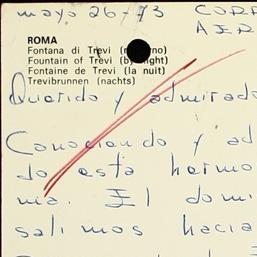 mayo 26-73 CORR
AER
ROMA
Fontana di Trevi
Fountain of Trevi
Fontaine de Trevi (la nuit)
Trevibrunnen (nachts)
Querido y admirado
Conociendo y ad
do esta hermo
ma. El domi
salimos hacia